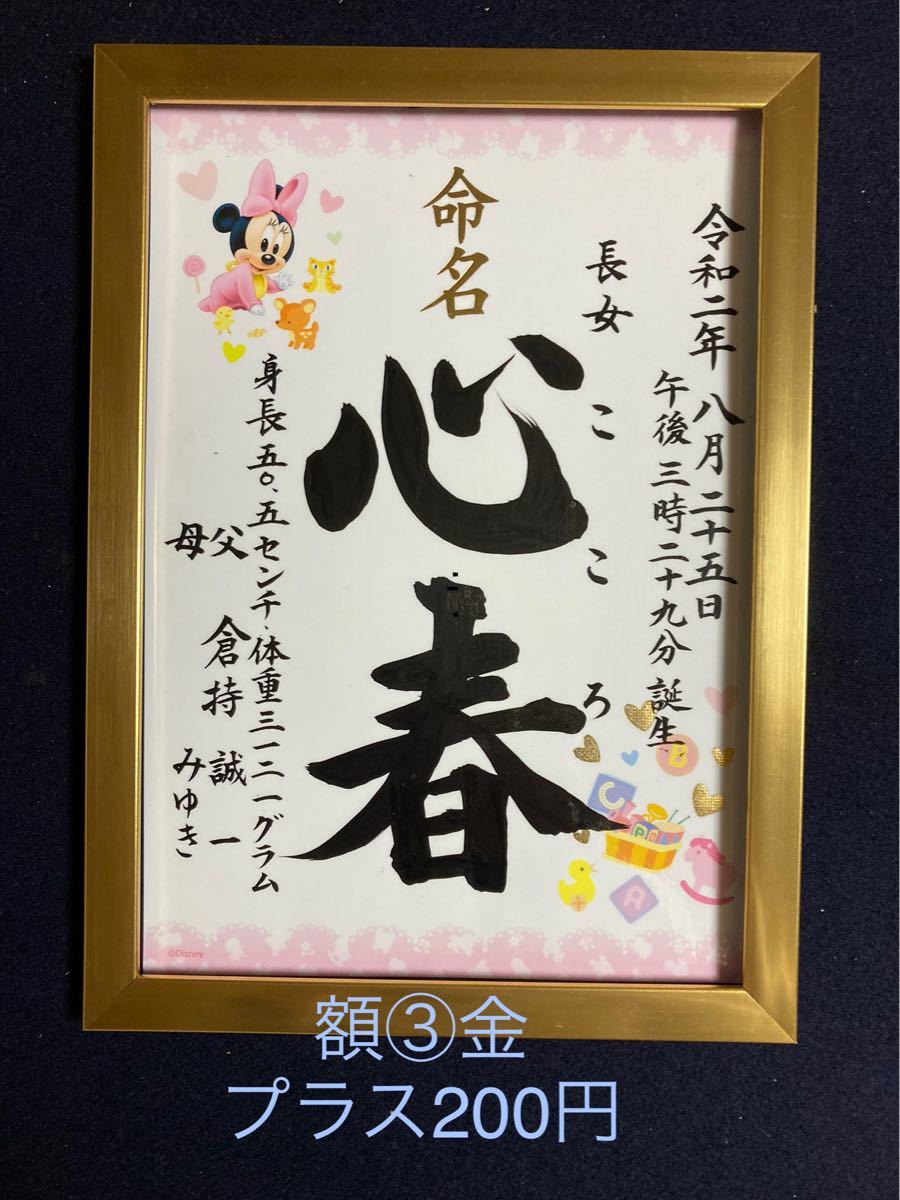 令和二年 八月二十五日
午後三時二十九分 誕生
長女 こころ
命名
心春
身長五〇.五センチ・体重三一二一グラム
父 倉持 誠一
母 みゆき
B
C
A
©Disney
額③金
プラス200円